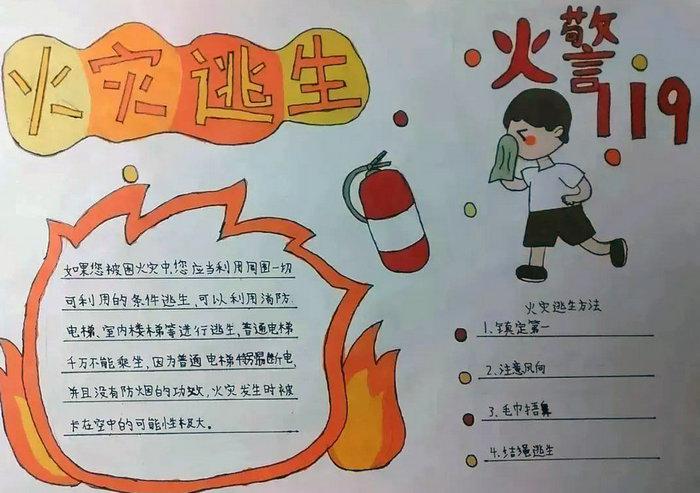 火灾逃生
火警
119
如果您被困火灾中,您应当利用周围一切
可利用的条件逃生,可以利用消防
电梯、室内楼梯等进行逃生,普通电梯
千万不能乘坐,因为普通电梯极易断电,
并且没有防烟的功效,火灾发生时被
卡在空中的可能性极大。
火灾逃生方法
1.镇定第一
2.注意风向
3.毛巾捂鼻
4.结绳逃生